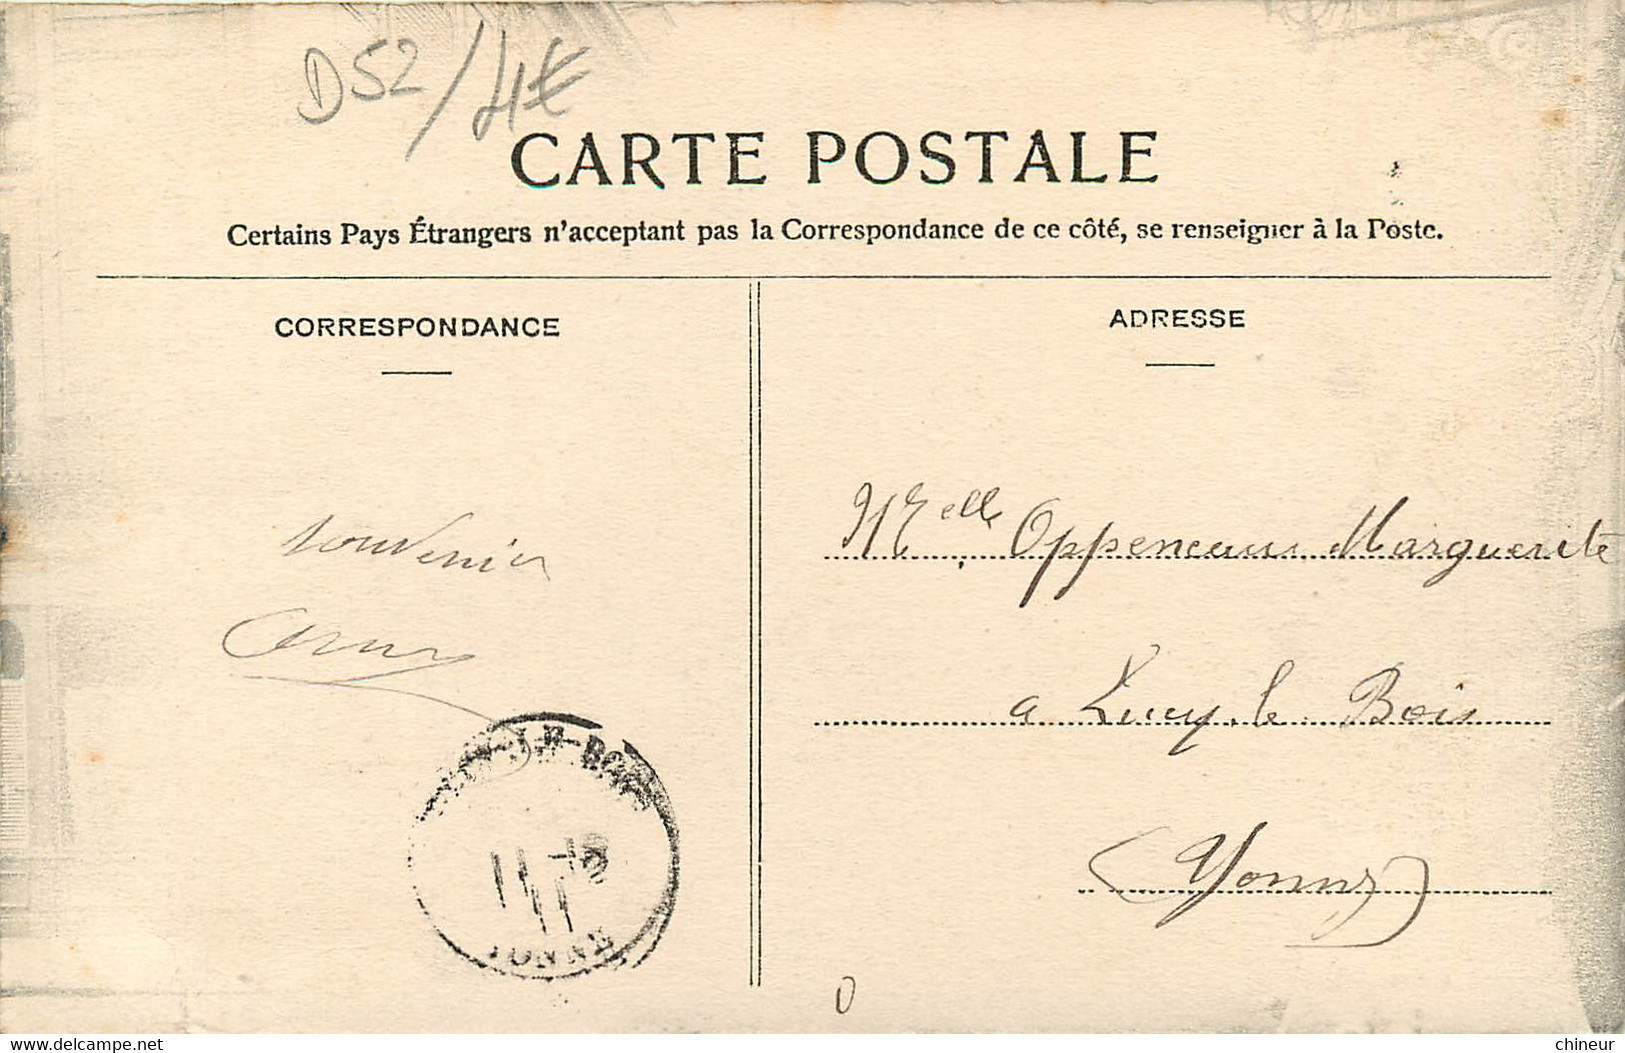 D52/4€
CARTE POSTALE
Certains Pays Étrangers n'acceptant pas la Correspondance de ce côté, se renseigner à la Poste.
CORRESPONDANCE
ADRESSE
Melle Oppeneau Marguerite
souvenir
a Lucy le Bois
LE-BOIS
11
11
YONNE
(Yonne)
0
delcampe.net
chineur